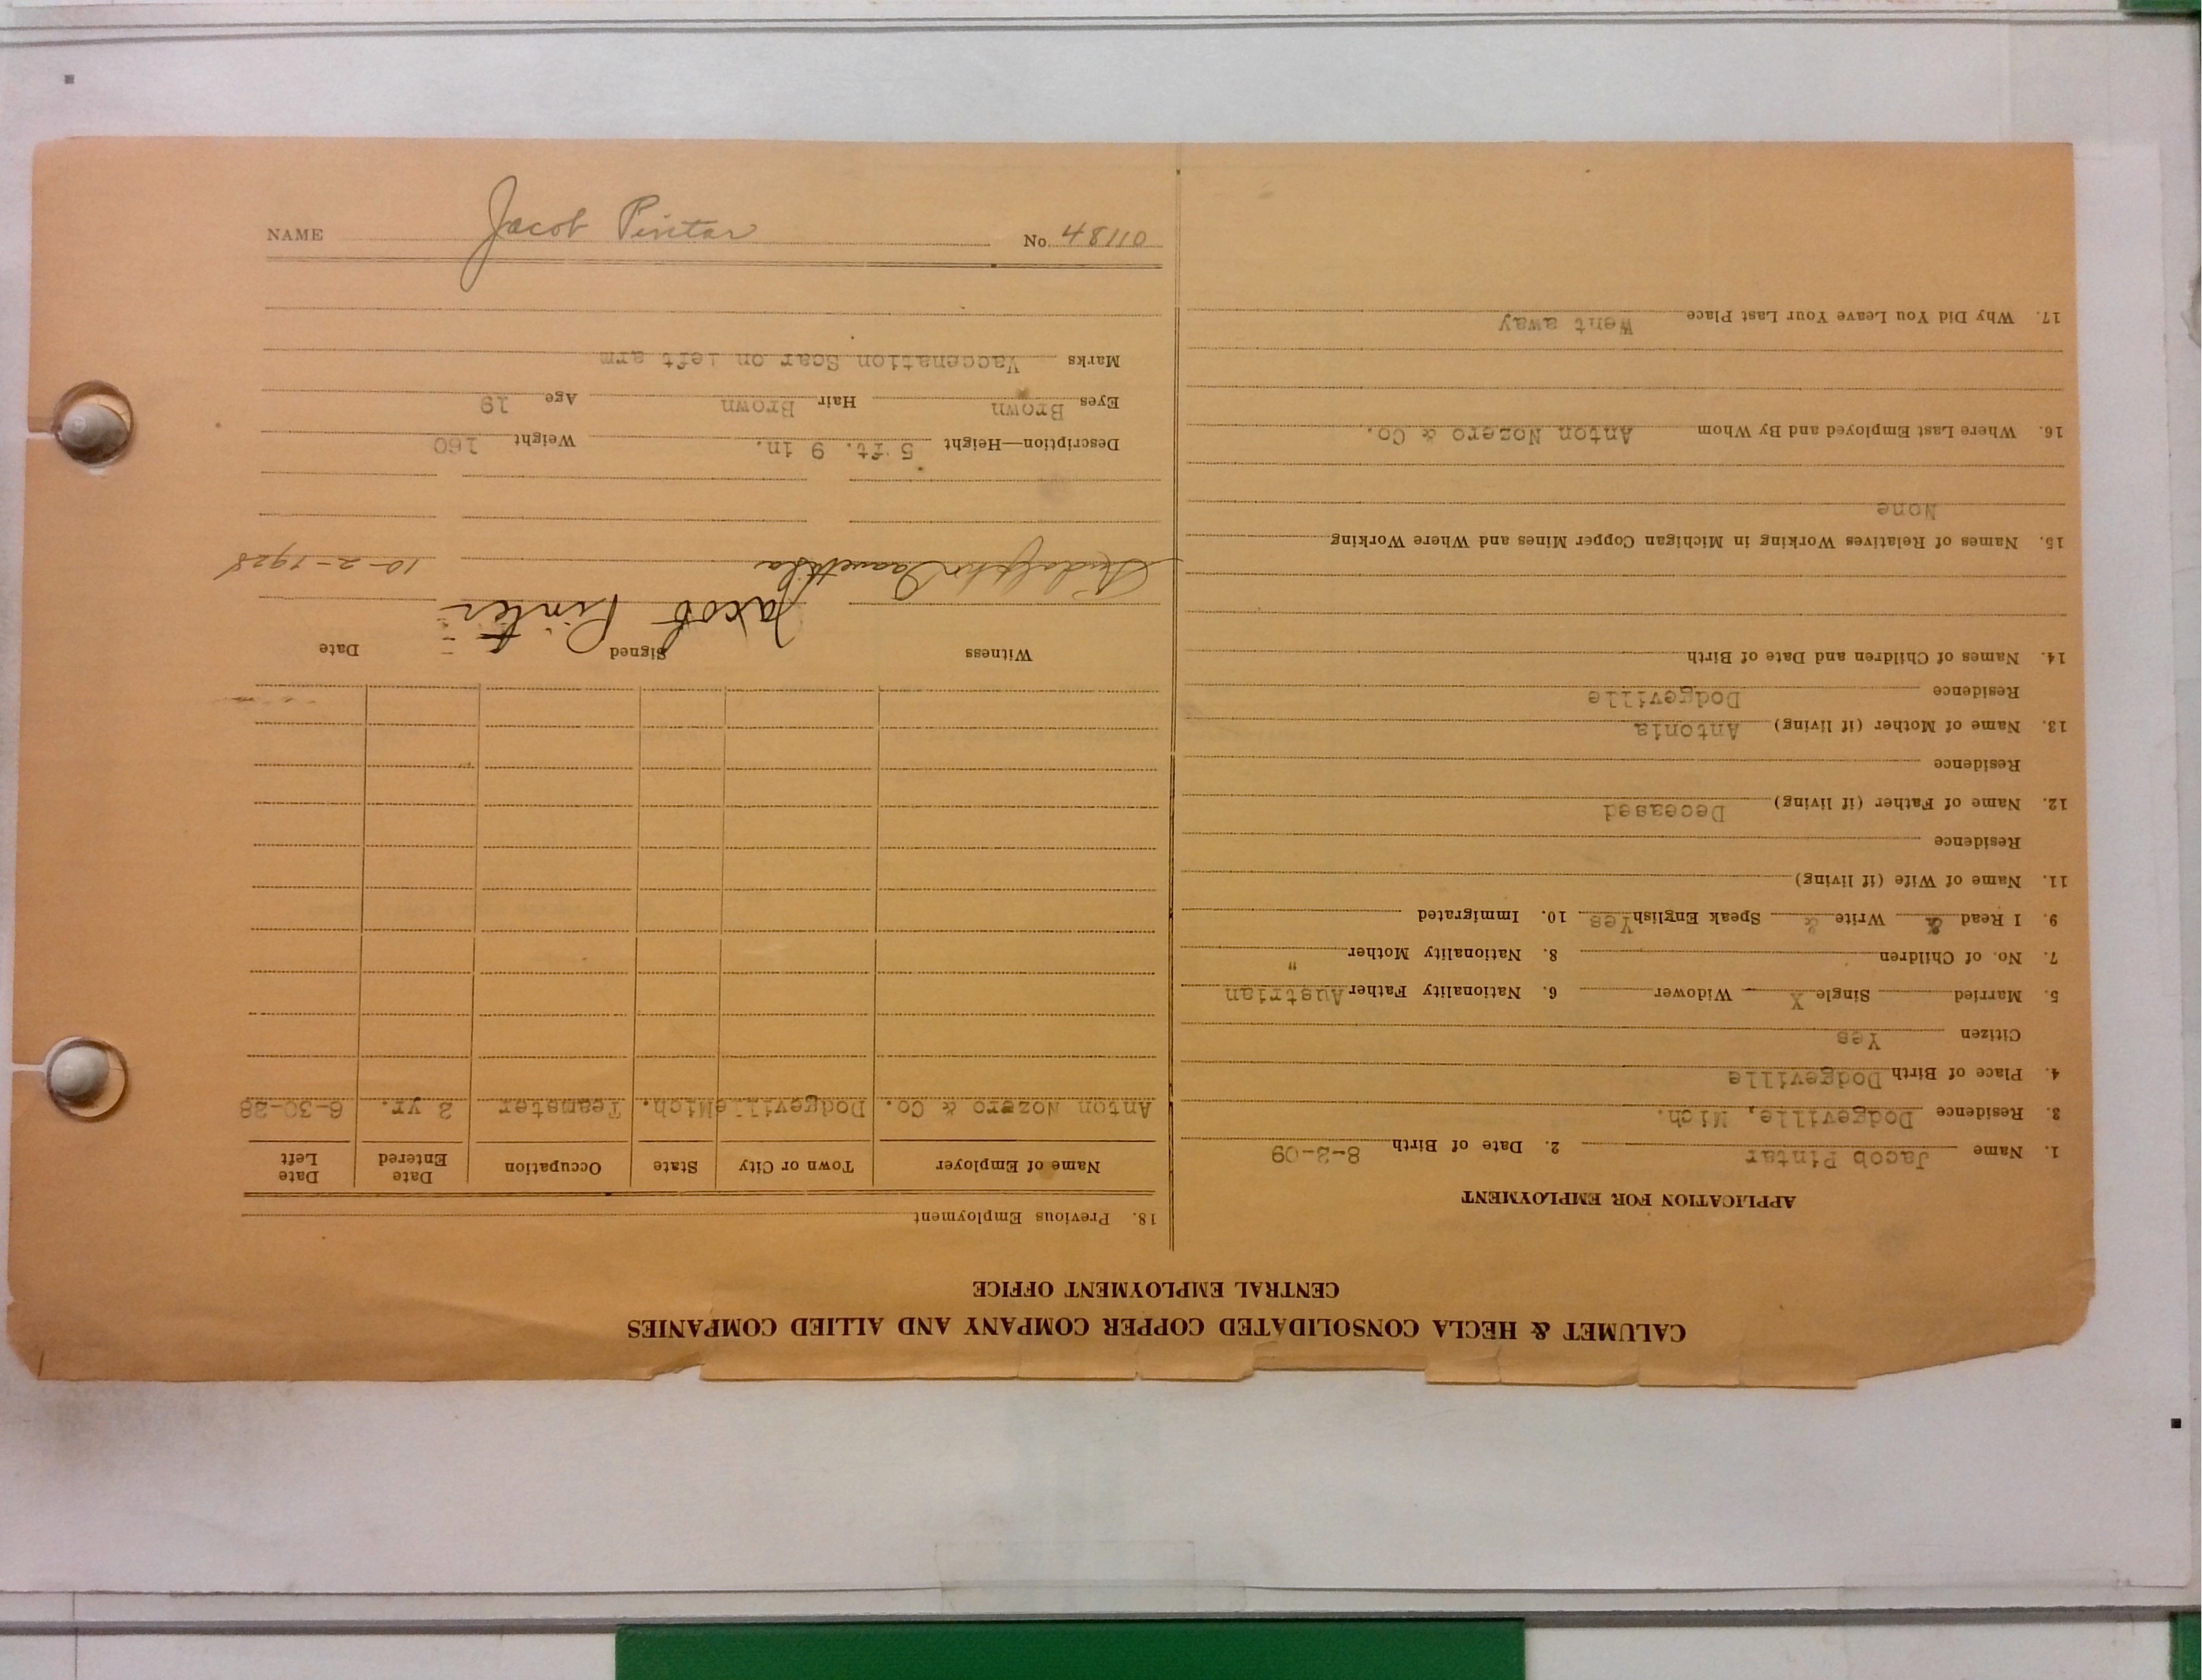 CALUMET & HECLA CONSOLIDATED COPPER COMPANY AND ALLIED COMPANIES
CENTRAL EMPLOYMENT OFFICE
APPLICATION FOR EMPLOYMENT
1. Name Jacob Pintar 2. Date of Birth 8-2-09
3. Residence Dodgeville, Mich.
4. Place of Birth Dodgeville
Citizen Yes
5. Married Single X Widower 6. Nationality Father Austrian
7. No. of Children 8. Nationality Mother "
9. I Read & Write & Speak English Yes 10. Immigrated
11. Name of Wife (if living)
Residence
12. Name of Father (if living) Deceased
Residence
13. Name of Mother (if living) Antonia
Residence Dodgeville
14. Names of Children and Date of Birth
15. Names of Relatives Working in Michigan Copper Mines and Where Working
None
16. Where Last Employed and By Whom Anton Nozero & Co.
17. Why Did You Leave Your Last Place Went away
18. Previous Employment
Name of Employer Town or City State Occupation Date Entered Date Left
Anton Nozero & Co. Dodgeville Mich. Teamster 2 yr. 6-30-28
Witness Signed Date
Jacob Pinter
10-2-1928
Description—Height 5 ft. 9 in. Weight 160
Eyes Brown Hair Brown Age 19
Marks Vaccenation Scar on Left arm
NAME Jacob Pintar No. 48110